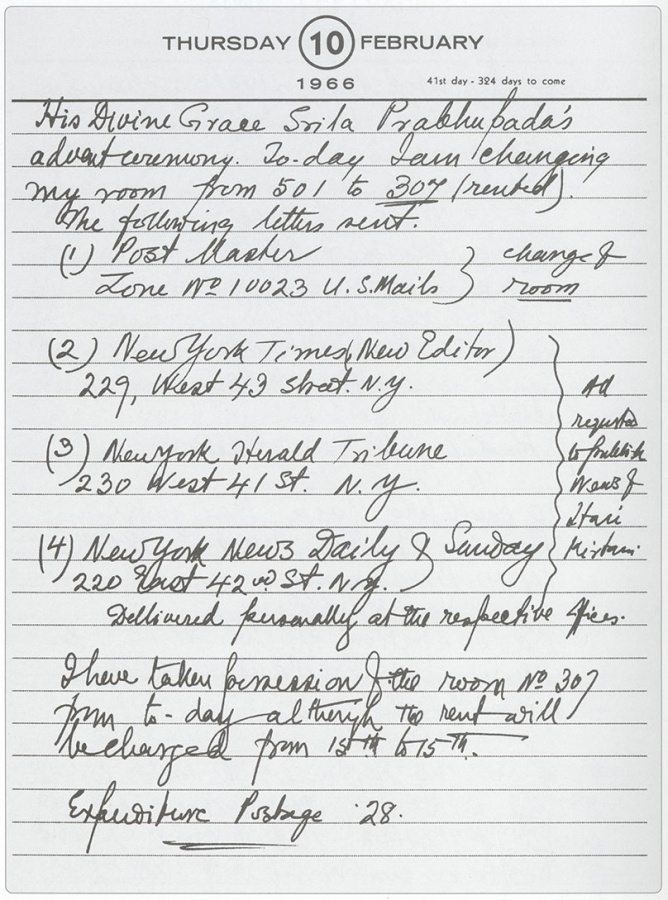 THURSDAY 10 FEBRUARY
1966
41st day - 324 days to come
His Divine Grace Srila Prabhupada's
advent ceremony. To-day I am changing
my room from 501 to 307 (rented).
The following letters sent.
(1) Post Master
Zone No 10023 U.S. Mails
change of
room
(2) New York Times (New Editor)
229, West 43 street. N.Y.
(3) New York Herald Tribune
230 West 41 St. N.Y.
(4) New York News Daily & Sunday
220 East 42nd St. N.Y.
All
requested
to publish
News of
Hari
Kirtan
Dellivered personally at the respective offices.
I have taken possession of the room No 307
from to-day although the rent will
be charged from 15th to 15th.
Expenditure Postage .28.